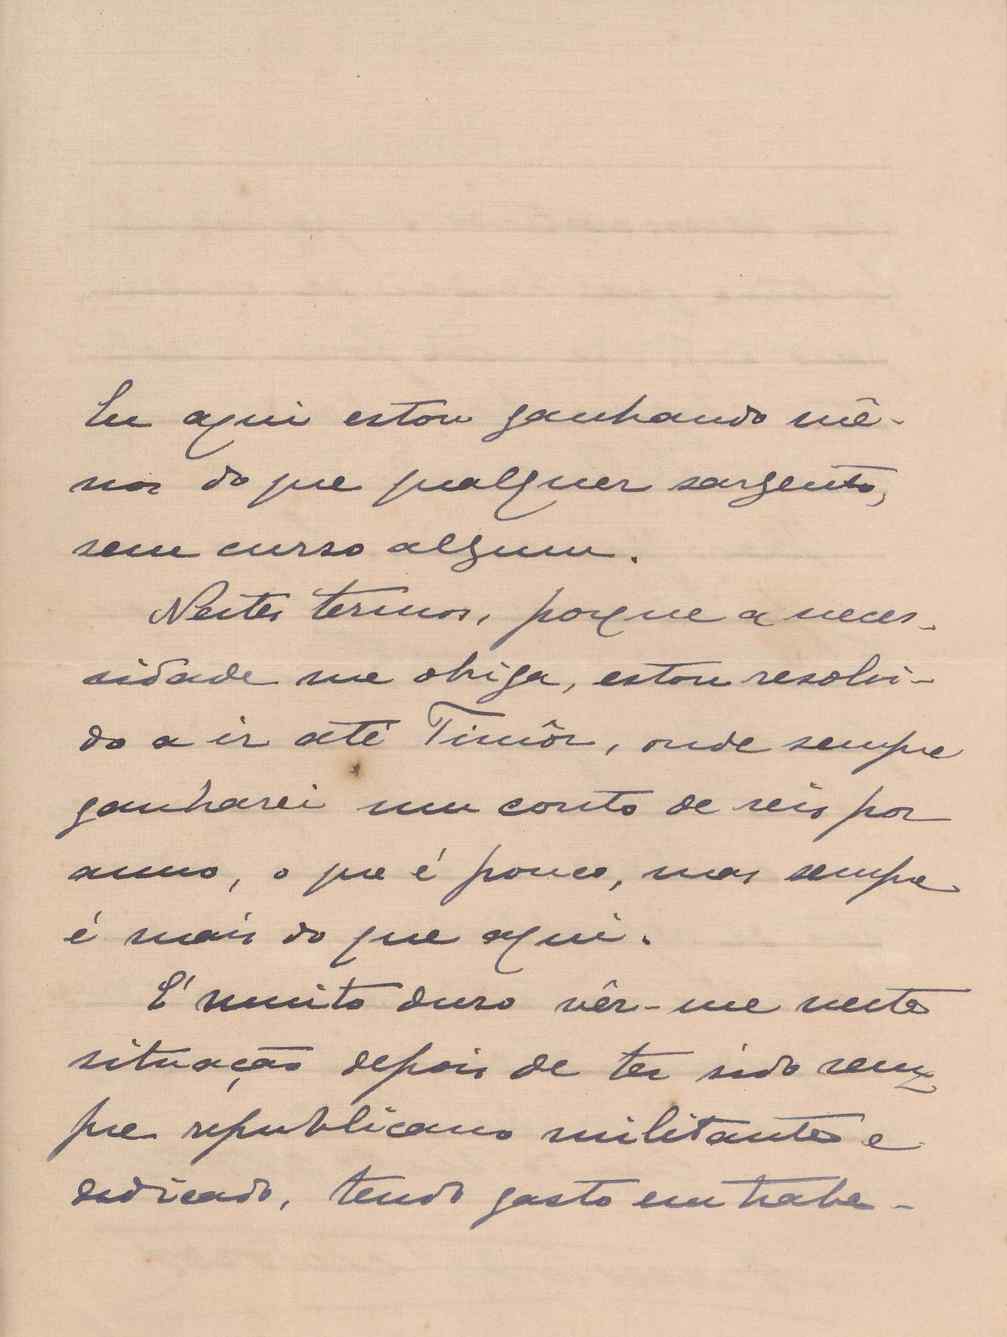 Eu aqui estou ganhando mê-
nos do que qualquer sargento,
sem curso algum.
Nestes termos, porque a neces-
sidade me obriga, estou resolvi-
do a ir até Timôr, onde sempre
ganharei um conto de reis por
anno, o que é pouco, mas sempre
é mais do que aqui.
E' muito duro vêr-me nesta
situação depois de ter sido sem-
pre republicano militante e
dedicado, tendo gasto em traba-